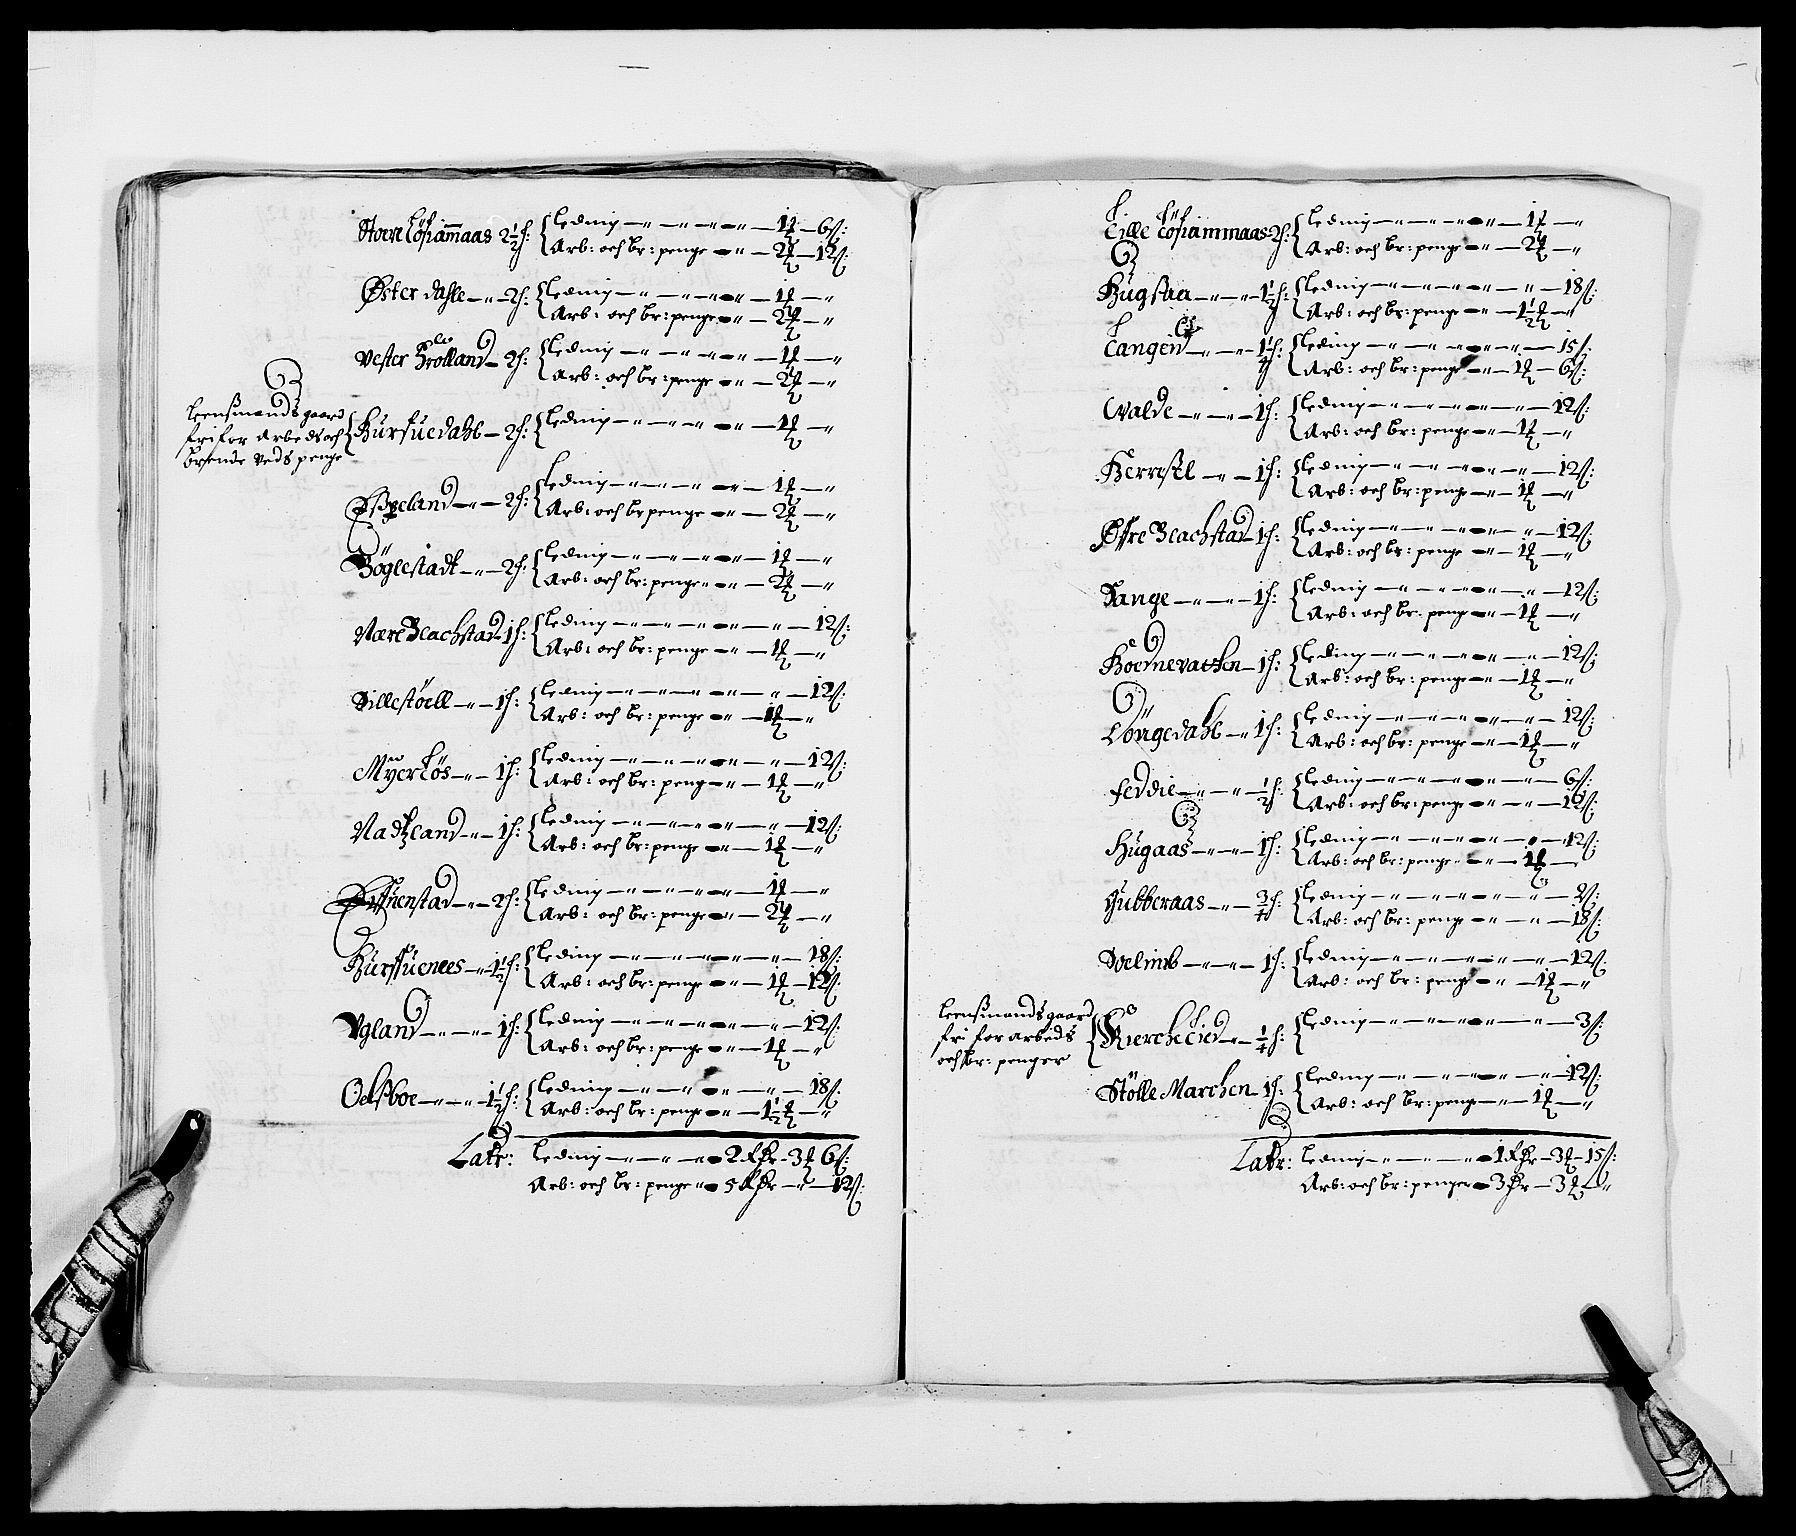 Store Lösiammaas 2½ h: Leding – 1 ℔ – 6 ß:
Arb: och br: penge – 2 ℔ – 12 ß:
Øster dahle – 2 h: Leding – 1 ℔ – "
Arb: och br: penge – 2 ℔ – "
Vester Brölland – 2 h: Leding – 1 ℔ – "
Arb: och br: penge – 2 ℔ – "
Leensmands gaard
fri for arbeds och
brende veds penge
Hursuedahl – 2 h: Leding – 1 ℔ – "
Espeland – 2 h: Leding – 1 ℔ – "
Arb: och br penge – 2 ℔ – "
Böglestadt – 2 h: Leding – 1 ℔ – "
Arb: och br: penge – 2 ℔ – "
Nære Beachstad 1 h: Leding – 12 ß:
Arb: och br: penge – 1 ℔ – "
Sillestöell – 1 h: Leding – 12 ß:
Arb: och br: penge – 1 ℔ – "
Myerlös – 1 h: Leding – 12 ß:
Arb: och br: peng – 1 ℔ – "
Nadland – 1 h: Leding – 12 ß:
Arb: och br: penge – 1 ℔ – "
– 2 h: Leding – 1 ℔ – "
Arb: och br: penge – 2 ℔ – "
Hursuenees – 1½ h: Leding – 18 ß:
Arb: och br: penge – 1 ℔ – 12 ß:
Vgland – 1 h: Leding – 12 ß:
Arb: och br: penge – 1 ℔ – "
Oelsboe – 1½ h: Leding – 18 ß:
Arb: och br: penge – 1½ ℔ – "
Latr: Leding – 2 Rdr – 3 ℔ 6 ß:
Arb: och br: penge – 5 Rdr – " – 12 ß:
Lille Lösiammaas 2 h: Leding – 1 ℔ – "
Arb: och br: penge – 2 ℔ – "
Hugstaa – 1½ h: Leding – 18 ß:
Arb: och br: penge – 1½ ℔ – "
Langeid – 1¼ h: Leding – 15 ß:
Arb: och br: penge – 1 ℔ – 6 ß:
Walde – 1 h: Leding – 12 ß:
Arb: och br: penge – 1 ℔ – "
Herrestel – 1 h: Leding – 12 ß:
Arb: och br: penge – 1 ℔ – "
Øfre Beachstad 1 h: Leding – 12 ß:
Arb: och br: penge – 1 ℔ – "
Sange – 1 h: Leding – 12 ß:
Arb: och br: penge – 1 ℔ – "
Hoednevatten – 1 h: Leding – 12 ß:
Arb: och br: penge – 1 ℔ – "
Löngedahl – 1 h: Leding – 12 ß:
Arb: och br: penge – 1 ℔ – "
Feddie – ½ h: Leding – 6 ß:
Arb: och br: penge – 12 ß:
Hugaas – 1 h: Leding – 12 ß:
Arb: och br: penge – 1 ℔ –
Gubberaas – ¾ h: Leding – 9 ß:
Arb: och br: penge – 18 ß:
– 1 h: Leding – 12 ß:
Arb: och br: penge – 1 ℔ – "
Leensmands gaard
fri for arbeids
och br: penger
Kiercheeied – ¼ h: Leding – 3 ß:
Stölle Marchen 1 h: Leding – 12 ß:
Arb: och br: peng – 1 ℔ – "
Latr: Leding – 1 Rdr – 3 ℔ – 15 ß:
Arb: och br: penger – 3 dr – 3 ℔ – "